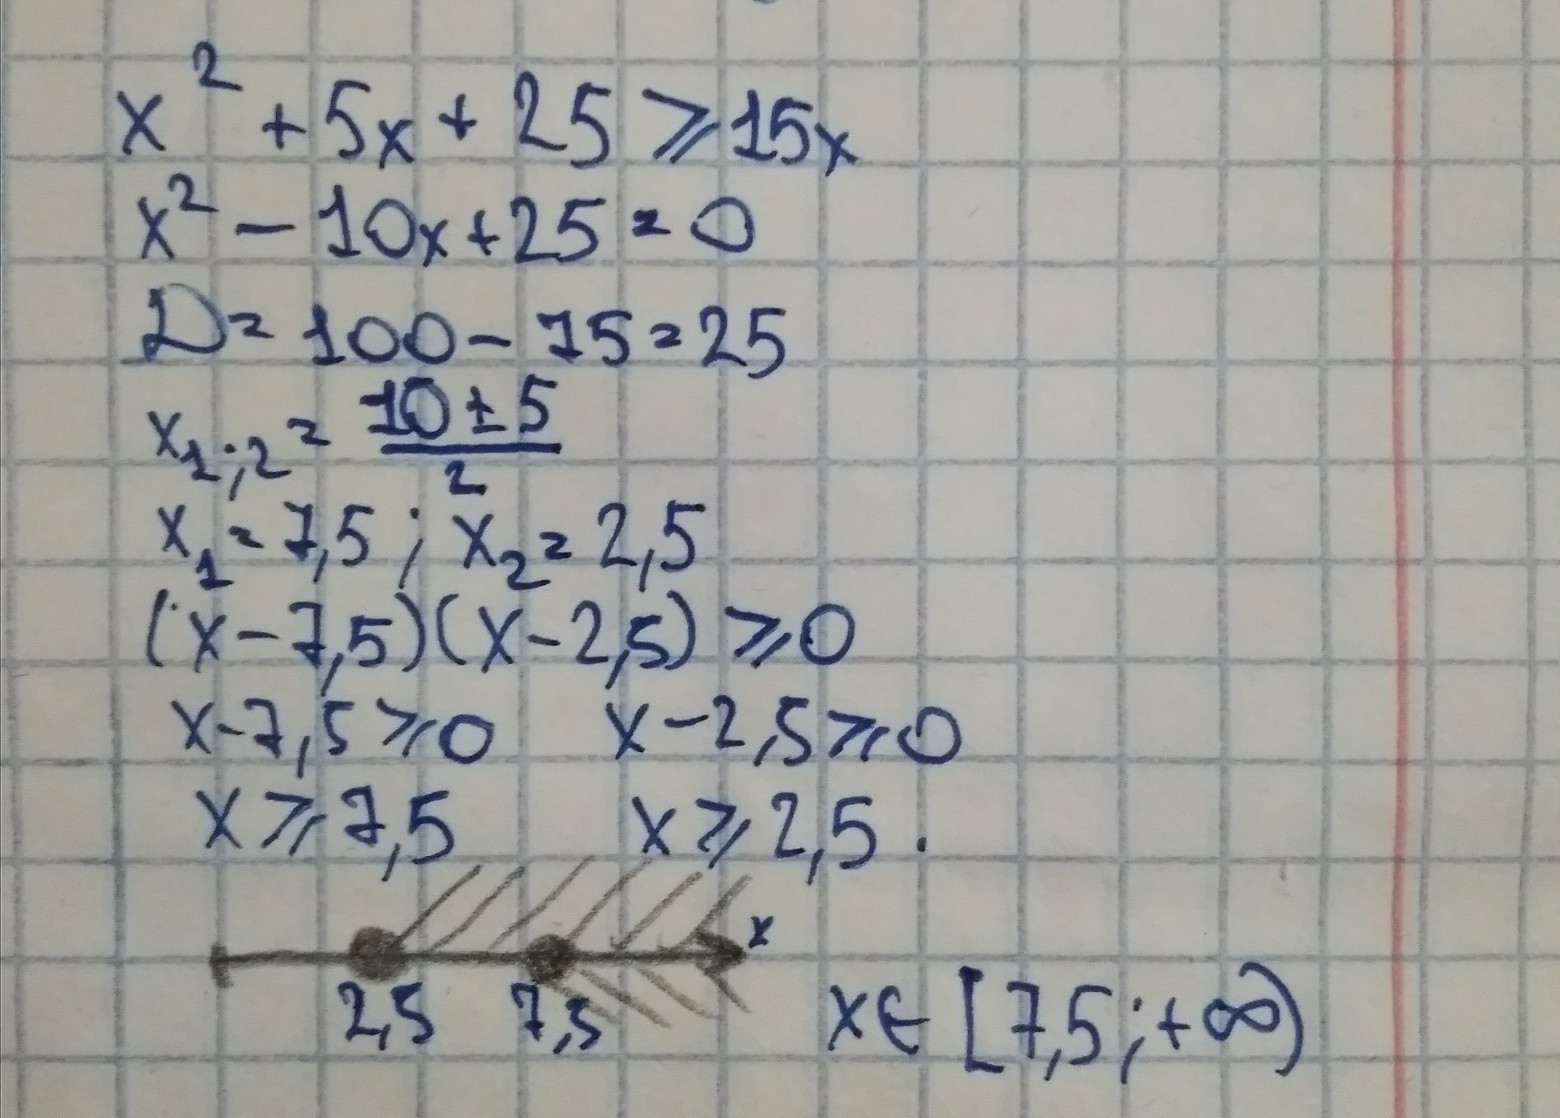 x² + 5x + 25 ⩾ 15x
x² − 10x + 25 = 0
D = 100 − 75 = 25
x₁;₂ = (10 ± 5)/2
x₁ = 7,5 ; x₂ = 2,5
(x − 7,5)(x − 2,5) ⩾ 0
x − 7,5 ⩾ 0 x − 2,5 ⩾ 0
x ⩾ 7,5 x ⩾ 2,5 .
x
2,5 7,5 x ∈ [7,5 ; +∞)